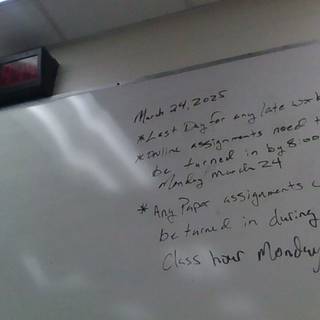 March 24, 2025
*Last Day for any late work
*Online assignments need
be turned in by 8:00
Monday March 24
*Any Paper assignments
be turned in during
Class hour Monday